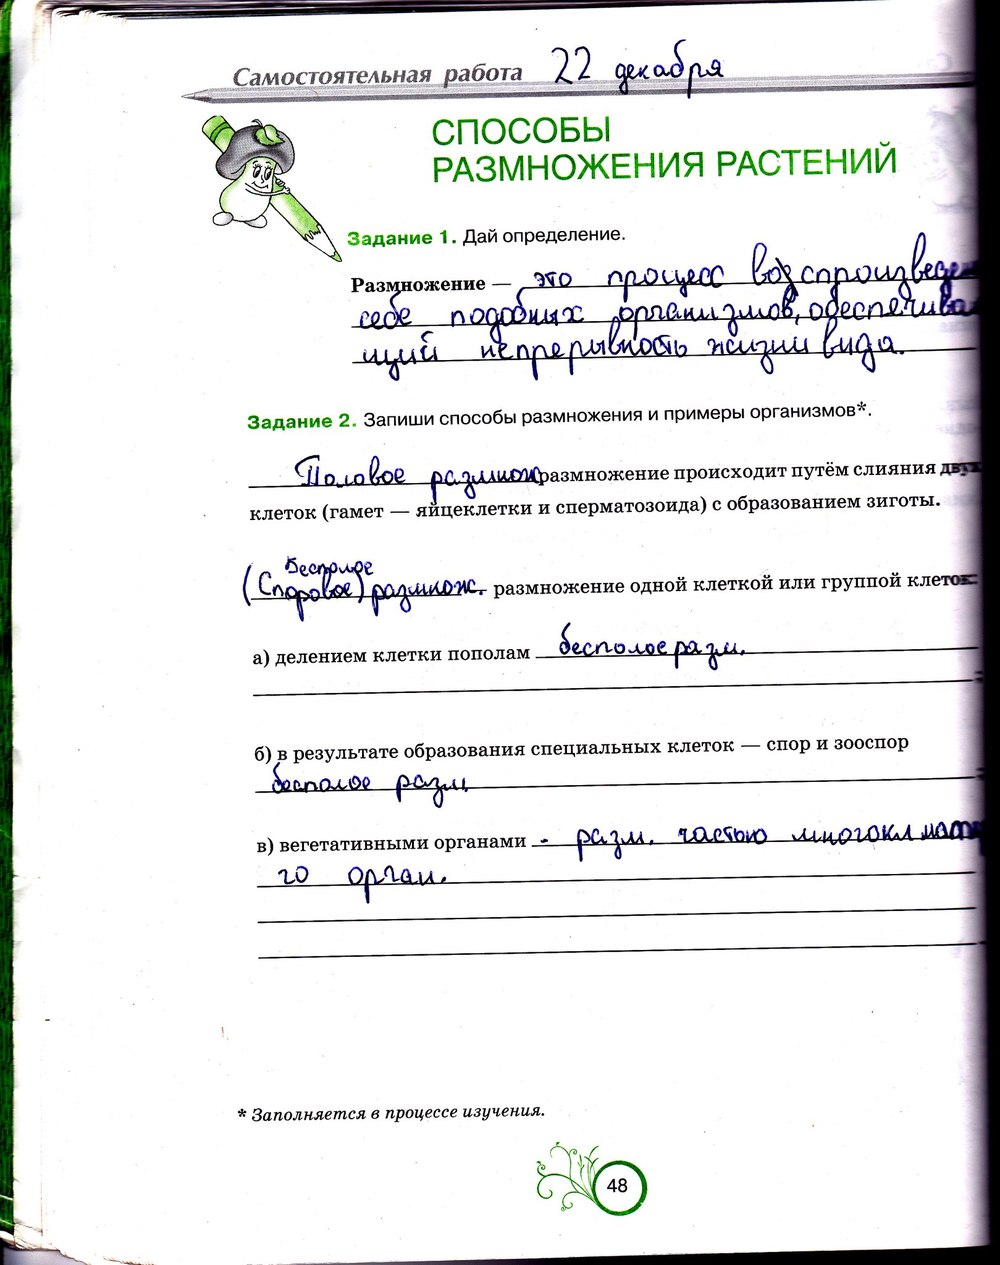 Самостоятельная работа 22 декабря
СПОСОБЫ
РАЗМНОЖЕНИЯ РАСТЕНИЙ
Задание 1. Дай определение.
Размножение — это процесс воспроизведен
себе подобных организмов, обеспечива
щий непрерывность жизни вида.
Задание 2. Запиши способы размножения и примеры организмов*.
Половое размнож размножение происходит путём слияния двух
клеток (гамет — яйцеклетки и сперматозоида) с образованием зиготы.
Бесполое
(Споровое) размнож. размножение одной клеткой или группой клеток:
а) делением клетки пополам бесполое разм.
б) в результате образования специальных клеток — спор и зооспор
бесполое разм.
в) вегетативными органами - разм. частью многокл
го орган.
* Заполняется в процессе изучения.
48